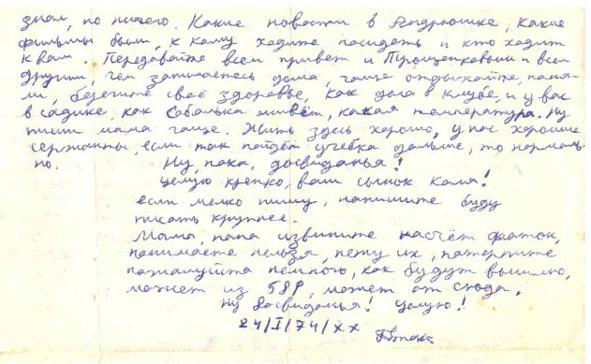 знал, но ничего. Какие новости в Андрюшике, какие
фильмы были, к кому ходите посидеть и кто ходит
к вам. Передавайте всем привет и Прощенковым и всем
другим, чем занимаетесь дома, чаще отдыхайте,
берегите своё здоровье, как дела в клубе, и у вас
в садике, как Соболька живёт, какая температура. Ну
пиши мама чаще. Жить здесь хорошо, у нас хорошие
сержанты, если так пойдёт учебка дальше, то нормаль
но. Ну, пока, досвиданья!
целую крепко, ваш сынок Коля!
если мелко пишу, напишите буду
писать крупнее.
Мама, папа извините насчёт фоток,
понимаете нельзя, нету их, потерпите
пожалуйста немного, как будут вышлю,
может из 58Р, может от сюда.
Ну досвиданья! Целую!
24/I/74/хх